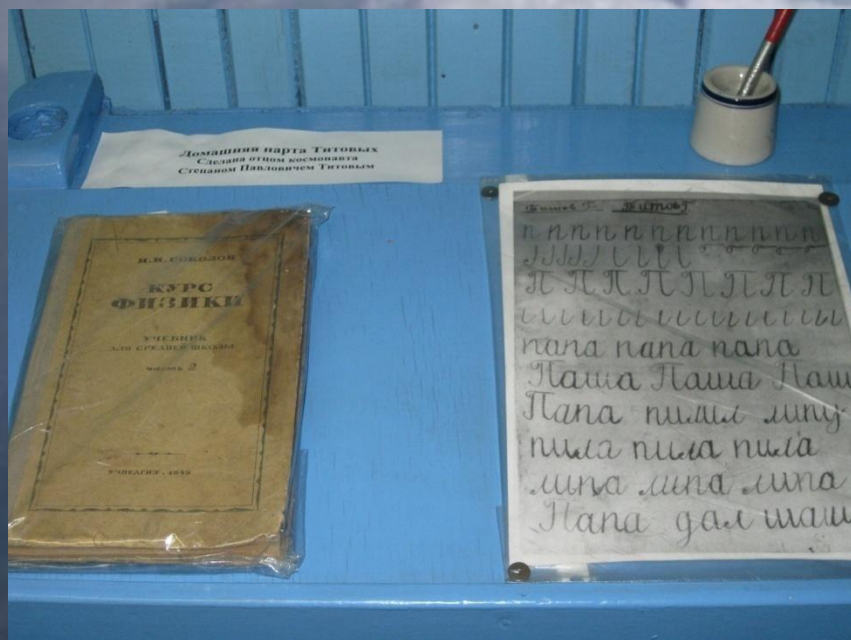 Домашняя парта Титовых
Сделана отцом космонавта
Степаном Павловичем Титовым
И.И. СОКОЛОВ
КУРС
ФИЗИКИ
УЧЕБНИК
ДЛЯ СРЕДНЕЙ ШКОЛЫ
ЧАСТЬ 2
УЧПЕДГИЗ
Титов Г
п п п п п п п п п п п п
П П П П П П П П
папа папа папа
Паша Паша Паш
Папа пилил липу
пила пила пила
липа липа липа
Папа дал шаш